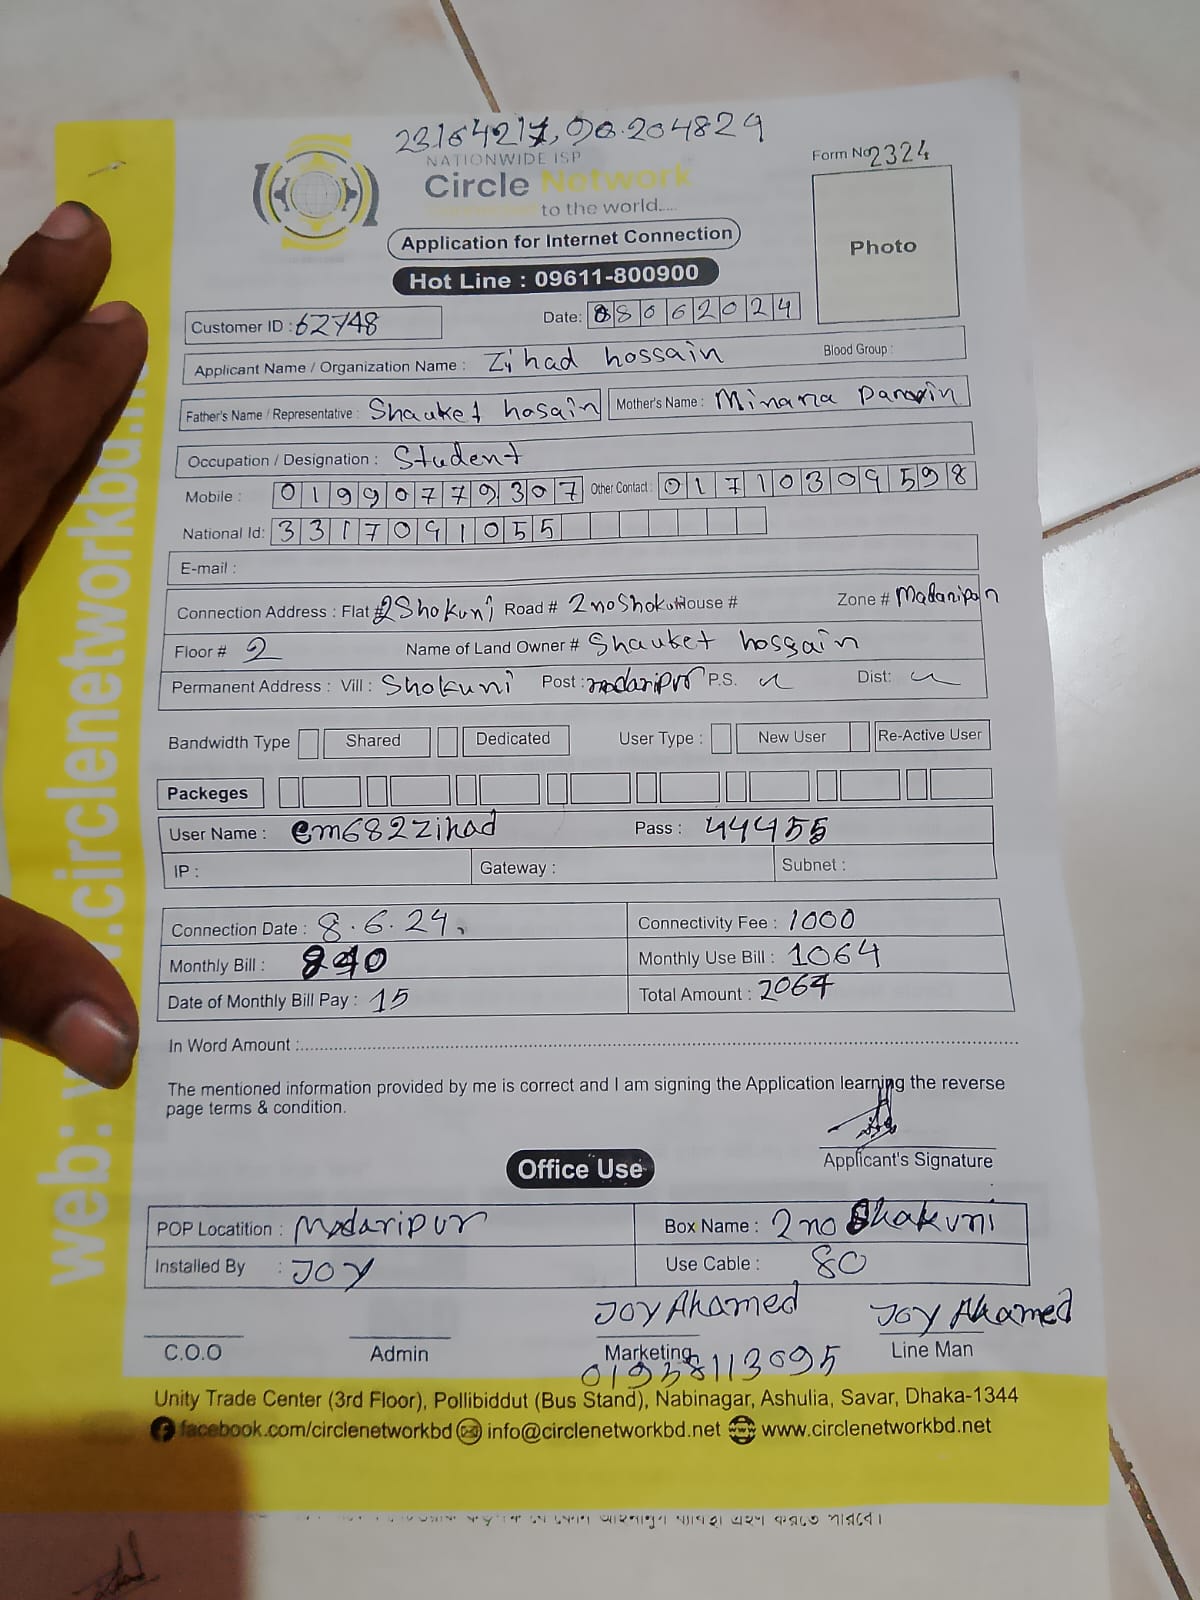 23164217, 90.204829
NATIONWIDE ISP
Circle Network
to the world....
Form No 2324
Photo
Application for Internet Connection
Hot Line : 09611-800900
Customer ID : 62748
Date: 08062024
Applicant Name / Organization Name : Zihad hossain Blood Group :
Father's Name / Representative : Shauket hosain Mother's Name : Minara
Occupation / Designation : Student
Mobile : 01990779307 Other Contact : 01710309598
National Id: 3317091055
E-mail :
Connection Address : Flat #2Shokuni Road # 2noShokuni House # Zone # Madaripon
Floor # 2 Name of Land Owner # Shauket hossain
Permanent Address : Vill : Shokuni Post : madaripur P.S. 〃 Dist: 〃
Bandwidth Type Shared Dedicated User Type : New User Re-Active User
Packeges
User Name : cm682zihad Pass : 44455
IP : Gateway : Subnet :
Connection Date : 8.6.24. Connectivity Fee : 1000
Monthly Bill : 840 Monthly Use Bill : 1064
Date of Monthly Bill Pay : 15 Total Amount : 2064
In Word Amount :
The mentioned information provided by me is correct and I am signing the Application learning the reverse
page terms & condition.
Applicant's Signature
Office Use
POP Locatition : Madaripur Box Name : 2 no Shakuni
Installed By : JOY Use Cable : 80
JOY Ahamed JOY Ahamed
C.O.O Admin Marketing Line Man
01938113095
Unity Trade Center (3rd Floor), Pollibiddut (Bus Stand), Nabinagar, Ashulia, Savar, Dhaka-1344
facebook.com/circlenetworkbd info@circlenetworkbd.net www.circlenetworkbd.net
web: www.circlenetworkbd.n